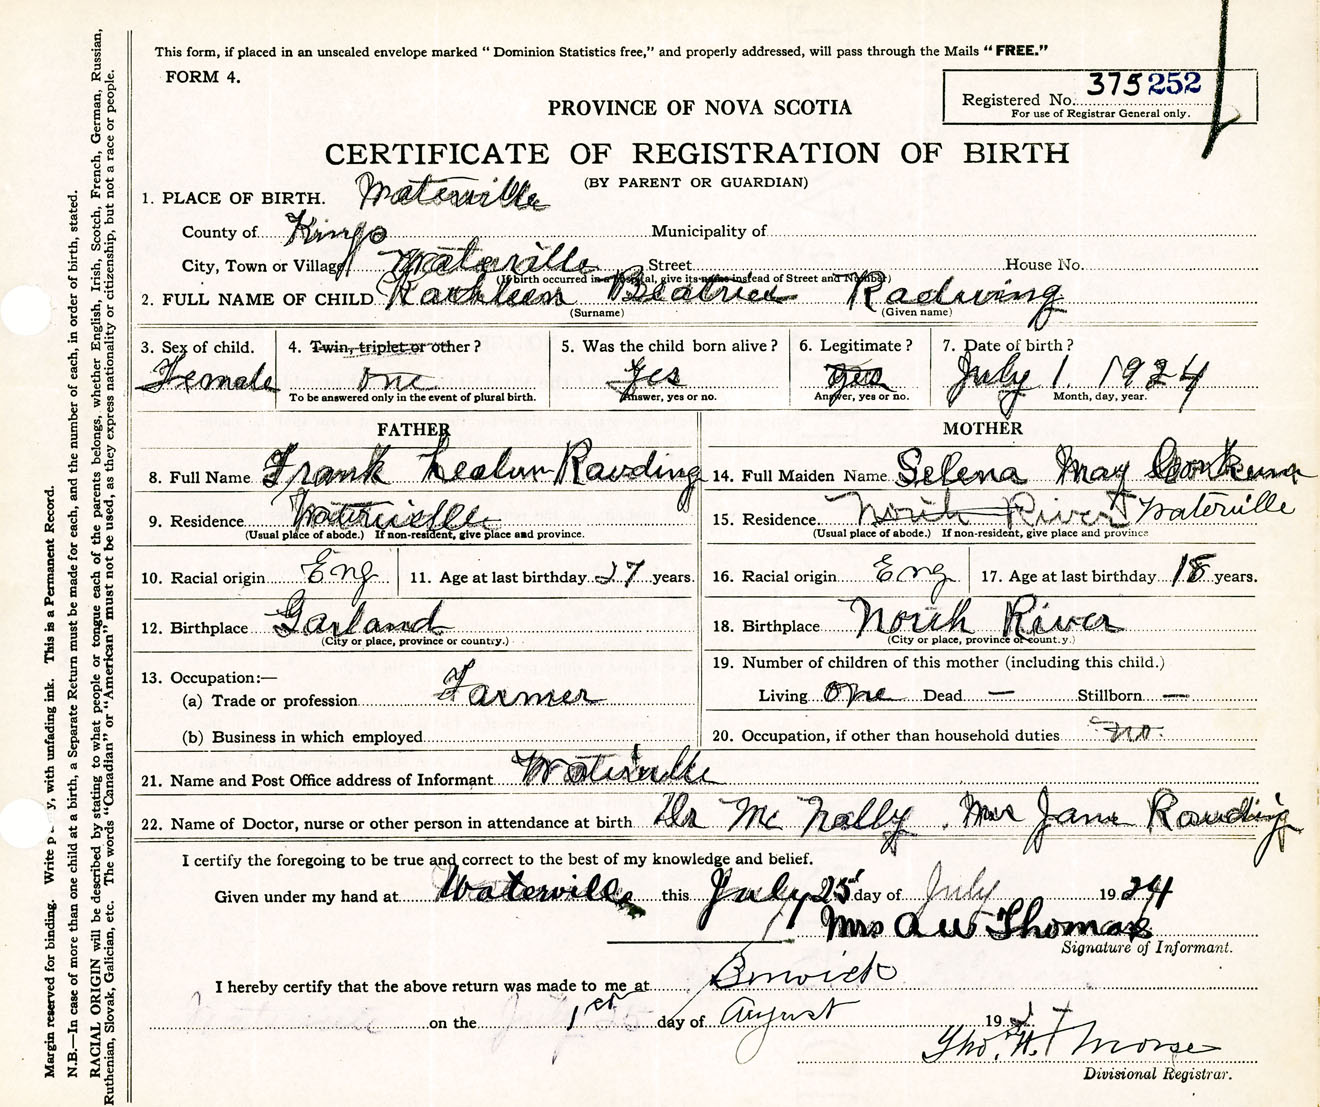 This form, if placed in an unsealed envelope marked "Dominion Statistics free," and properly addressed, will pass through the Mails "FREE."
FORM 4.
Registered No. 375252
For use of Registrar General only.
PROVINCE OF NOVA SCOTIA
CERTIFICATE OF REGISTRATION OF BIRTH
(BY PARENT OR GUARDIAN)
1. PLACE OF BIRTH. Waterville
County of Kings Municipality of
City, Town or Village Waterville Street House No.
(If birth occurred in a hospital, give its name instead of Street and Number)
2. FULL NAME OF CHILD Kathleen Beatrice Radwing
(Surname) (Given name)
3. Sex of child. 4. Twin, triplet or other? 5. Was the child born alive? 6. Legitimate? 7. Date of birth?
Female one Yes Yes July 1. 1924
To be answered only in the event of plural birth. Answer, yes or no. Answer, yes or no. Month, day, year.
FATHER
8. Full Name Frank Rawding
9. Residence Waterville
(Usual place of abode.) If non-resident, give place and province.
10. Racial origin Eng 11. Age at last birthday 27 years.
12. Birthplace Garland
(City or place, province or country.)
13. Occupation:—
(a) Trade or profession Farmer
(b) Business in which employed
MOTHER
14. Full Maiden Name Selena May
15. Residence North River Waterville
(Usual place of abode.) If non-resident, give place and province
16. Racial origin Eng 17. Age at last birthday 18 years.
18. Birthplace North River
(City or place, province or country.)
19. Number of children of this mother (including this child.)
Living one Dead — Stillborn —
20. Occupation, if other than household duties no.
21. Name and Post Office address of Informant Waterville
22. Name of Doctor, nurse or other person in attendance at birth Dr McNally. Mrs Jane Rawding
I certify the foregoing to be true and correct to the best of my knowledge and belief.
Given under my hand at Waterville this July 25 day of July 1924
Mrs A W Thomas
Signature of Informant.
I hereby certify that the above return was made to me at Berwick
on the 1st day of August 19
Tho. H. Morse
Divisional Registrar.
Margin reserved for binding. Write p y, with unfading ink. This is a Permanent Record.
N.B.—In case of more than one child at a birth, a Separate Return must be made for each, and the number of each, in order of birth, stated.
RACIAL ORIGIN will be described by stating to what people or tongue each of the parents belongs, whether English, Irish, Scotch, French, German, Russian,
Ruthenian, Slovak, Galician, etc. The words "Canadian" or "American" must not be used, as they express nationality or citizenship, but not a race or people.